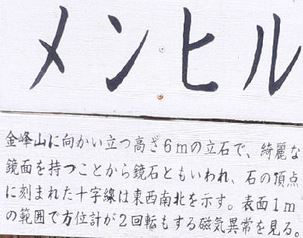 メンヒル
金峰山に向かい立つ高さ6mの立石で、綺麗な
鏡面を持つことから鏡石ともいわれ、石の頂点
に刻まれた十字線は東西南北を示す。表面1m
の範囲で方位計が2回転もする磁気異常を見る。